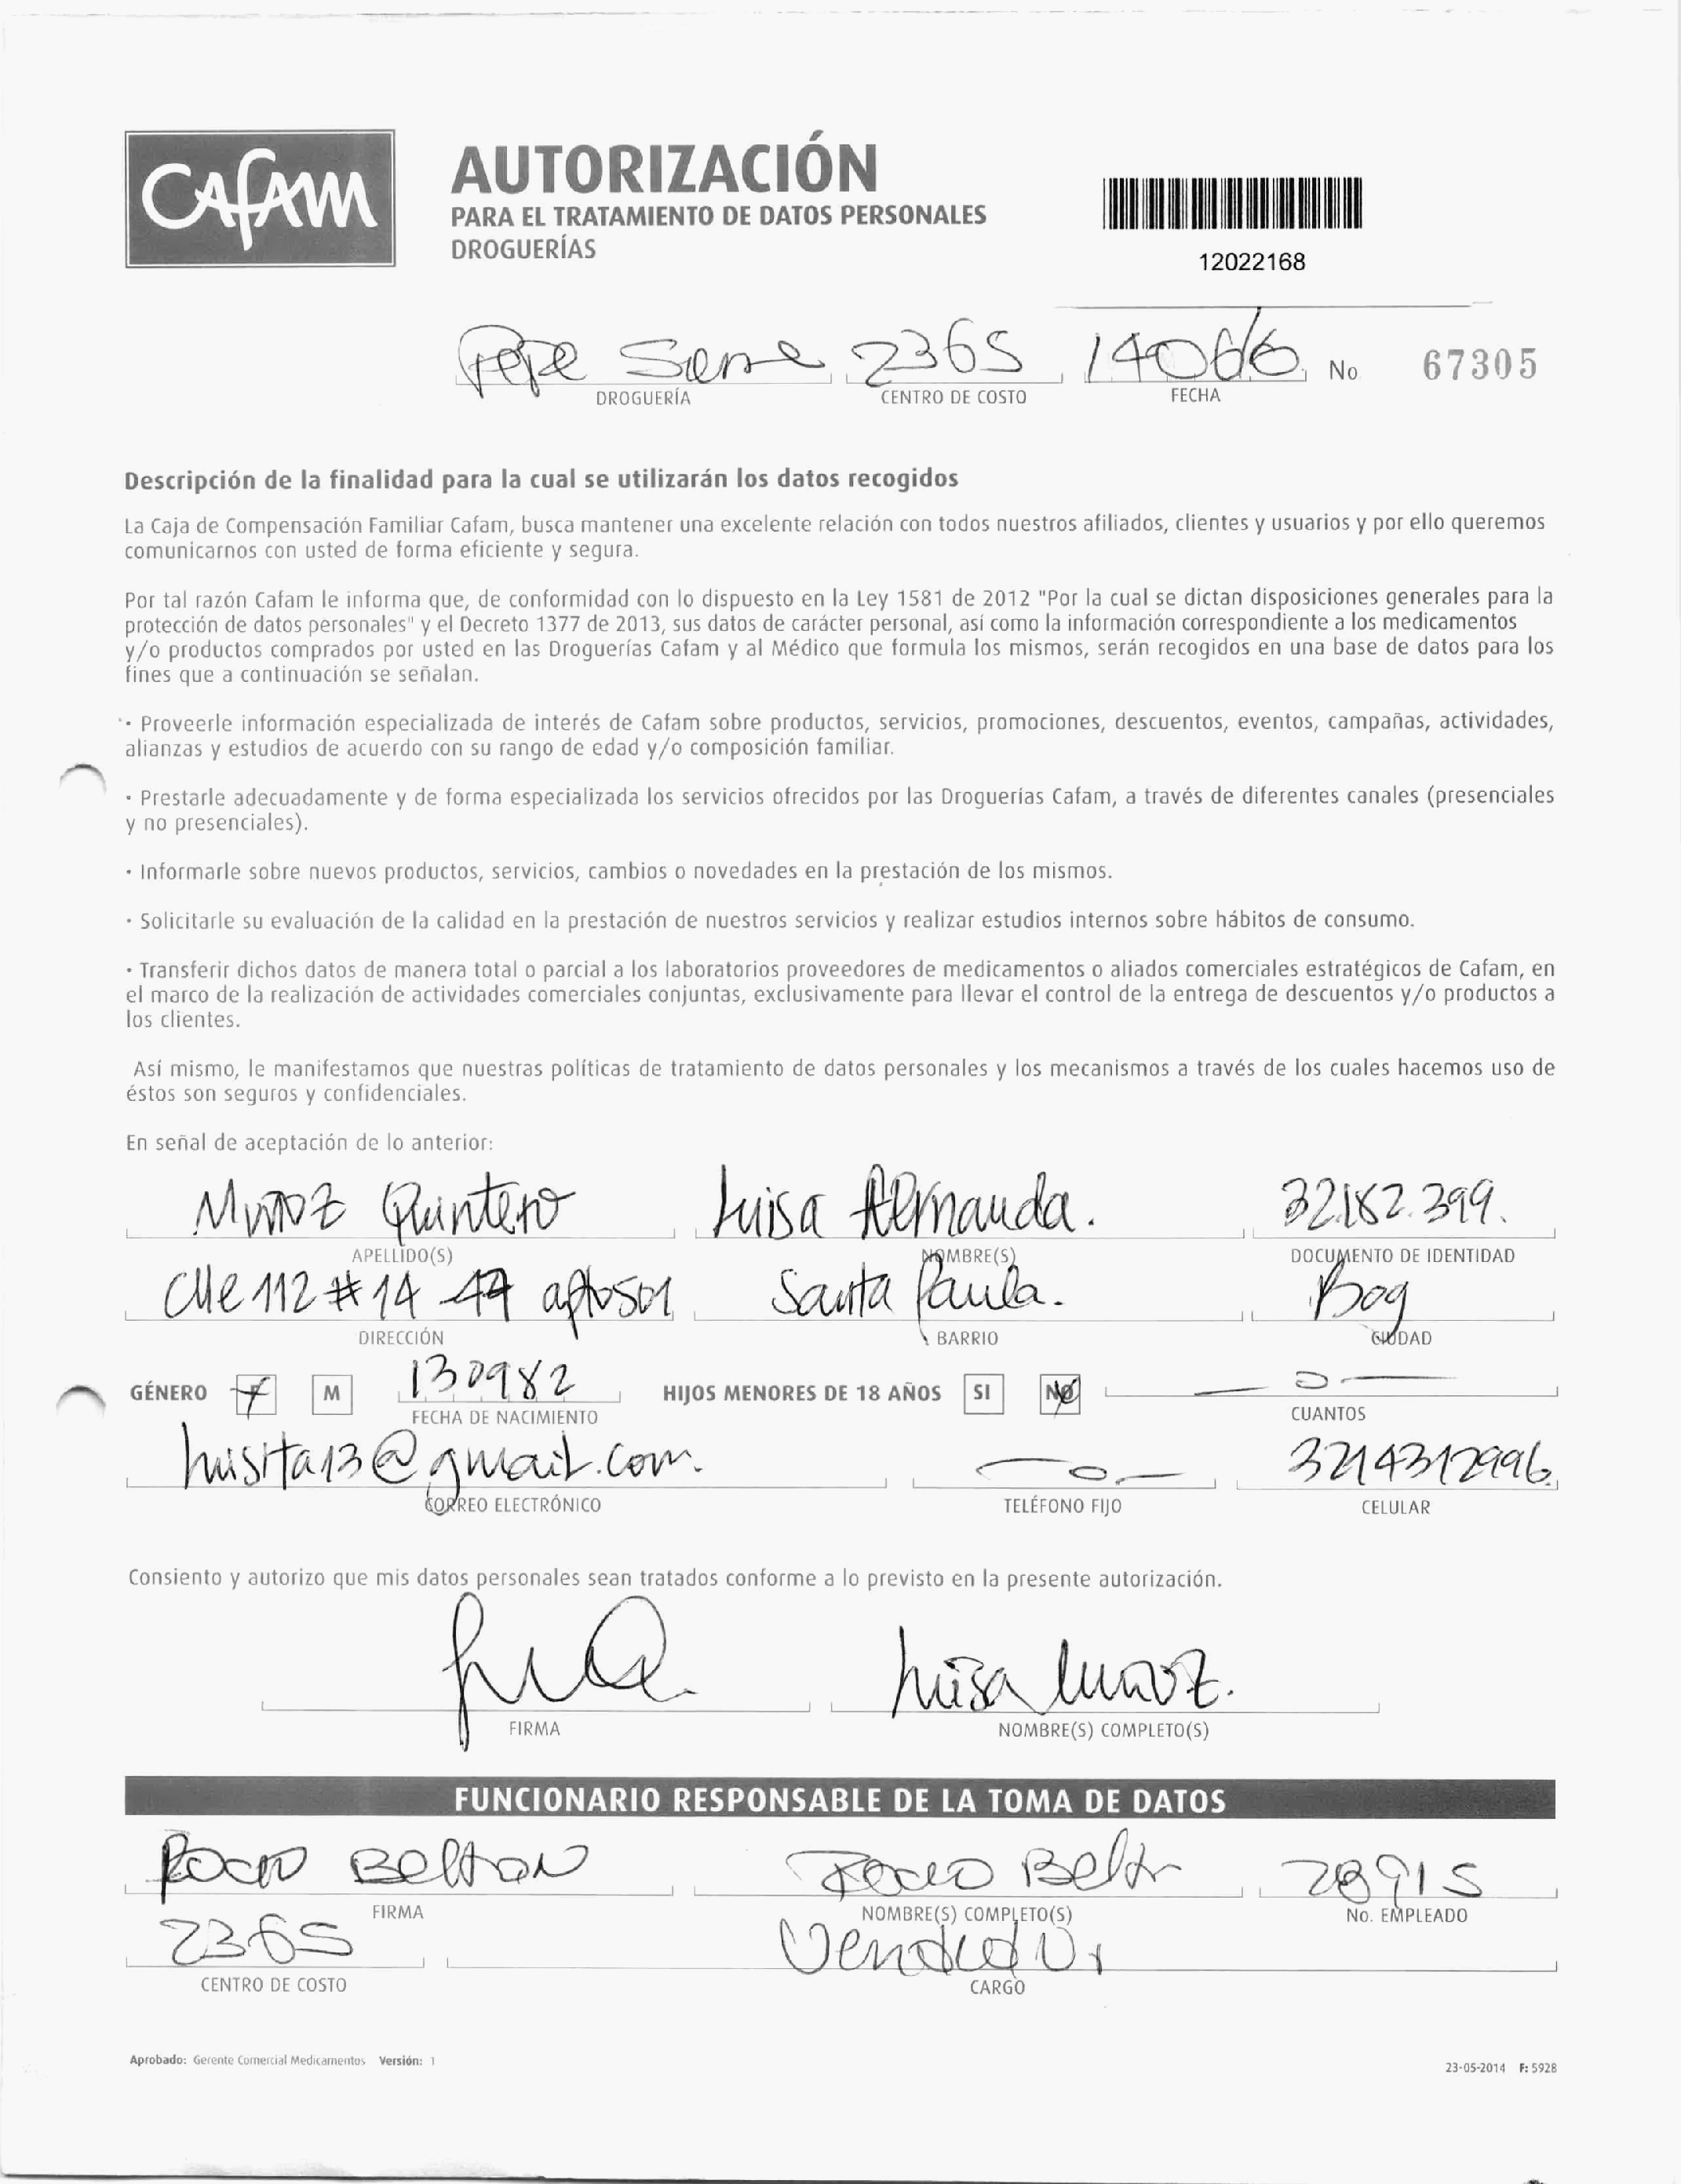 CAFAM
AUTORIZACIÓN
PARA EL TRATAMIENTO DE DATOS PERSONALES
DROGUERÍAS
12022168
Pepe Sierra 2365 140616 No. 67305
DROGUERÍA CENTRO DE COSTO FECHA
Descripción de la finalidad para la cual se utilizarán los datos recogidos
La Caja de Compensación Familiar Cafam, busca mantener una excelente relación con todos nuestros afiliados, clientes y usuarios y por ello queremos
comunicarnos con usted de forma eficiente y segura.
Por tal razón Cafam le informa que, de conformidad con lo dispuesto en la Ley 1581 de 2012 "Por la cual se dictan disposiciones generales para la
protección de datos personales" y el Decreto 1377 de 2013, sus datos de carácter personal, así como la información correspondiente a los medicamentos
y/o productos comprados por usted en las Droguerías Cafam y al Médico que formula los mismos, serán recogidos en una base de datos para los
fines que a continuación se señalan.
· Proveerle información especializada de interés de Cafam sobre productos, servicios, promociones, descuentos, eventos, campañas, actividades,
alianzas y estudios de acuerdo con su rango de edad y/o composición familiar.
· Prestarle adecuadamente y de forma especializada los servicios ofrecidos por las Droguerías Cafam, a través de diferentes canales (presenciales
y no presenciales).
· Informarle sobre nuevos productos, servicios, cambios o novedades en la prestación de los mismos.
· Solicitarle su evaluación de la calidad en la prestación de nuestros servicios y realizar estudios internos sobre hábitos de consumo.
· Transferir dichos datos de manera total o parcial a los laboratorios proveedores de medicamentos o aliados comerciales estratégicos de Cafam, en
el marco de la realización de actividades comerciales conjuntas, exclusivamente para llevar el control de la entrega de descuentos y/o productos a
los clientes.
Así mismo, le manifestamos que nuestras políticas de tratamiento de datos personales y los mecanismos a través de los cuales hacemos uso de
éstos son seguros y confidenciales.
En señal de aceptación de lo anterior:
Muñoz Quintero Luisa Fernanda. 32.182.399.
APELLIDO(S) NOMBRE(S) DOCUMENTO DE IDENTIDAD
Clle 112 # 14 49 apto 501 Santa Paula. Bog
DIRECCIÓN BARRIO CIUDAD
GÉNERO F M 130982 HIJOS MENORES DE 18 AÑOS SI NO - 0 -
FECHA DE NACIMIENTO CUANTOS
luisita13@gmail.com. - 0 - 3214312996
CORREO ELECTRÓNICO TELÉFONO FIJO CELULAR
Consiento y autorizo que mis datos personales sean tratados conforme a lo previsto en la presente autorización.
Luisa Munoz.
FIRMA NOMBRE(S) COMPLETO(S)
FUNCIONARIO RESPONSABLE DE LA TOMA DE DATOS
Rocio Beltran Rocio Beltr 28915
FIRMA NOMBRE(S) COMPLETO(S) No. EMPLEADO
2365 Vendedor
CENTRO DE COSTO CARGO
Aprobado: Gerente Comercial Medicamentos Versión: 1 23-05-2014 F: 5928